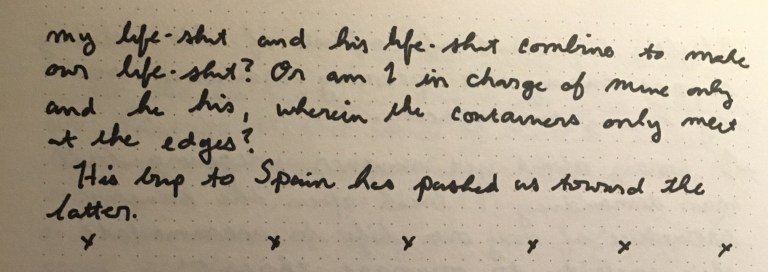 my life-shit and his life-shit combine to make
our life-shit? Or am I in charge of mine only
and he his, wherein the containers only meet
at the edges?
His trip to Spain has pushed us toward the
latter.
x x x x x x